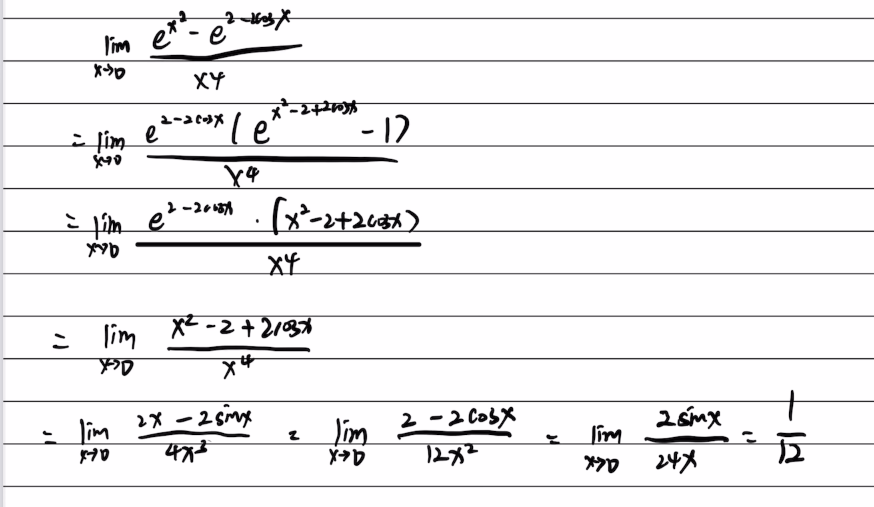 lim x→0 (e^(x^2) - e^(2-2cosx)) / x^4
= lim x→0 e^(2-2cosx) (e^(x^2-2+2cosx) - 1) / x^4
= lim x→0 e^(2-2cosx) · (x^2-2+2cosx) / x^4
= lim x→0 (x^2-2+2cosx) / x^4
= lim x→0 (2x-2sinx) / 4x^3 = lim x→0 (2-2cosx) / 12x^2 = lim x→0 2sinx / 24x = 1/12